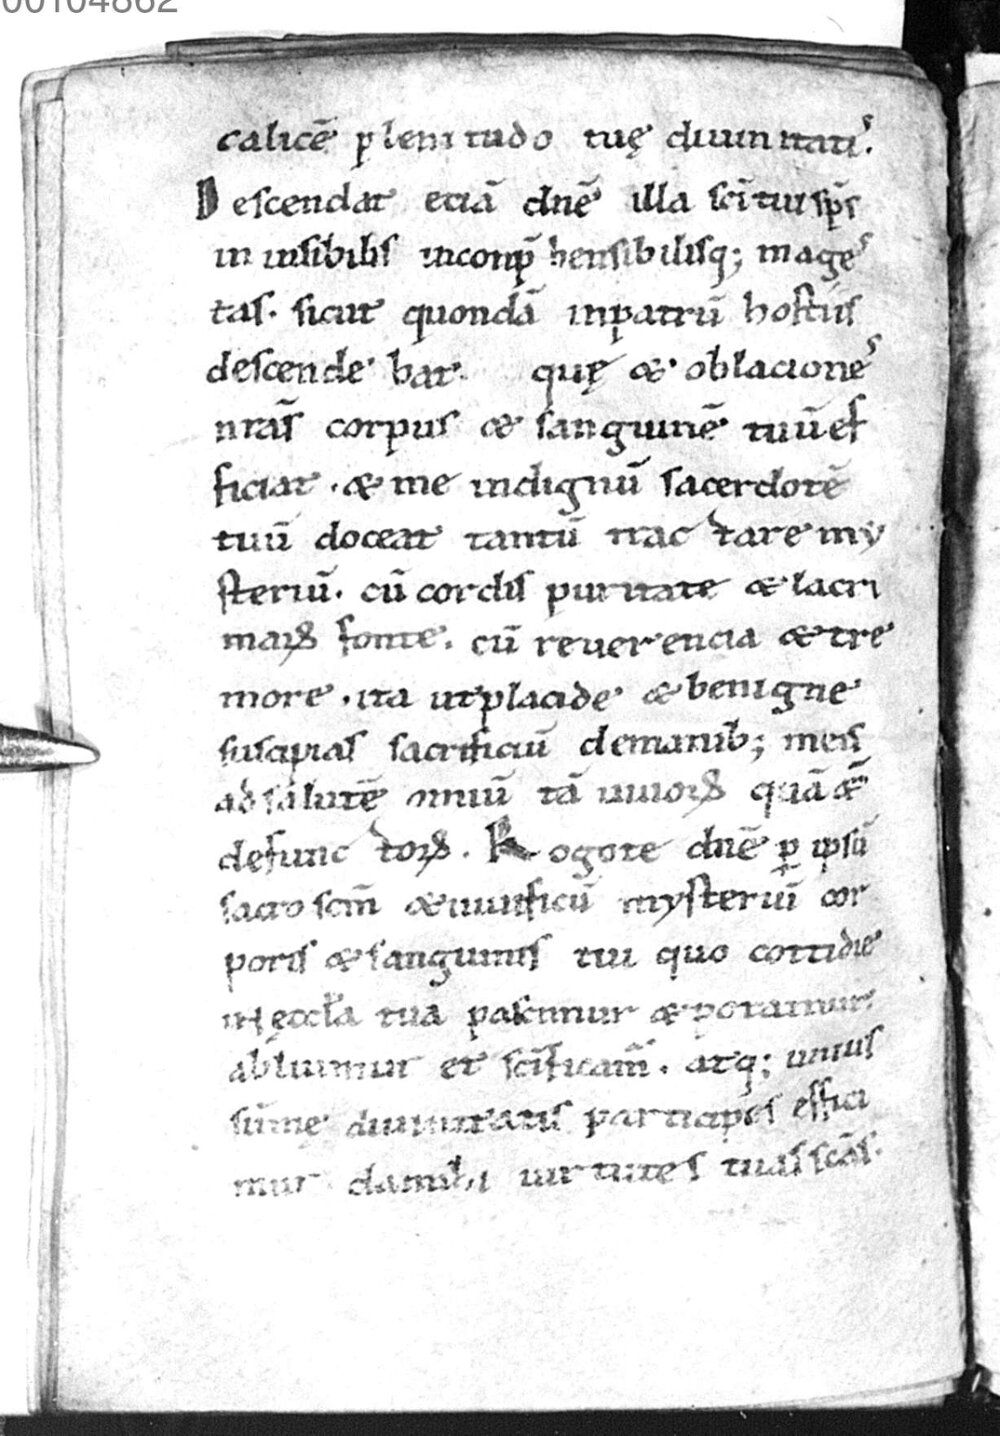 00104862
calicē ꝑlenitudo tuę diuinitatis.
Descendat etiā dn̄e illa sc̄i tui sp̄s
in insibilis inconp̄hensibilisq; mages
tas. sicut quondā inpatrū hostiis
descendebat. quę & oblaciones
nrās corpus & sanguinē tuū ef
ficiat . & me indignū sacerdotē
tuū doceat tantū trac tare my
steriū. cū cordis puritate & lacri
maꝝ fonte. cū reuerencia & tre
more . ita ut placide & benigne
suscipias sacrificiū demanib; meis
ad salutē om̄iū tā uiuoꝝ quā &
defunc toꝝ. Rogo te dn̄e ꝑ ipsū
sacro scm̄ & uiuificū mysteriū cor
poris & sanguinis tui quo cottidie
in ęccl̄a tua pascimur & potamur.
abluimur et sc̄ificam̄. atq; unius
sūme diuinitatis participes effici
mur da mihi uirtutes tuas scās.